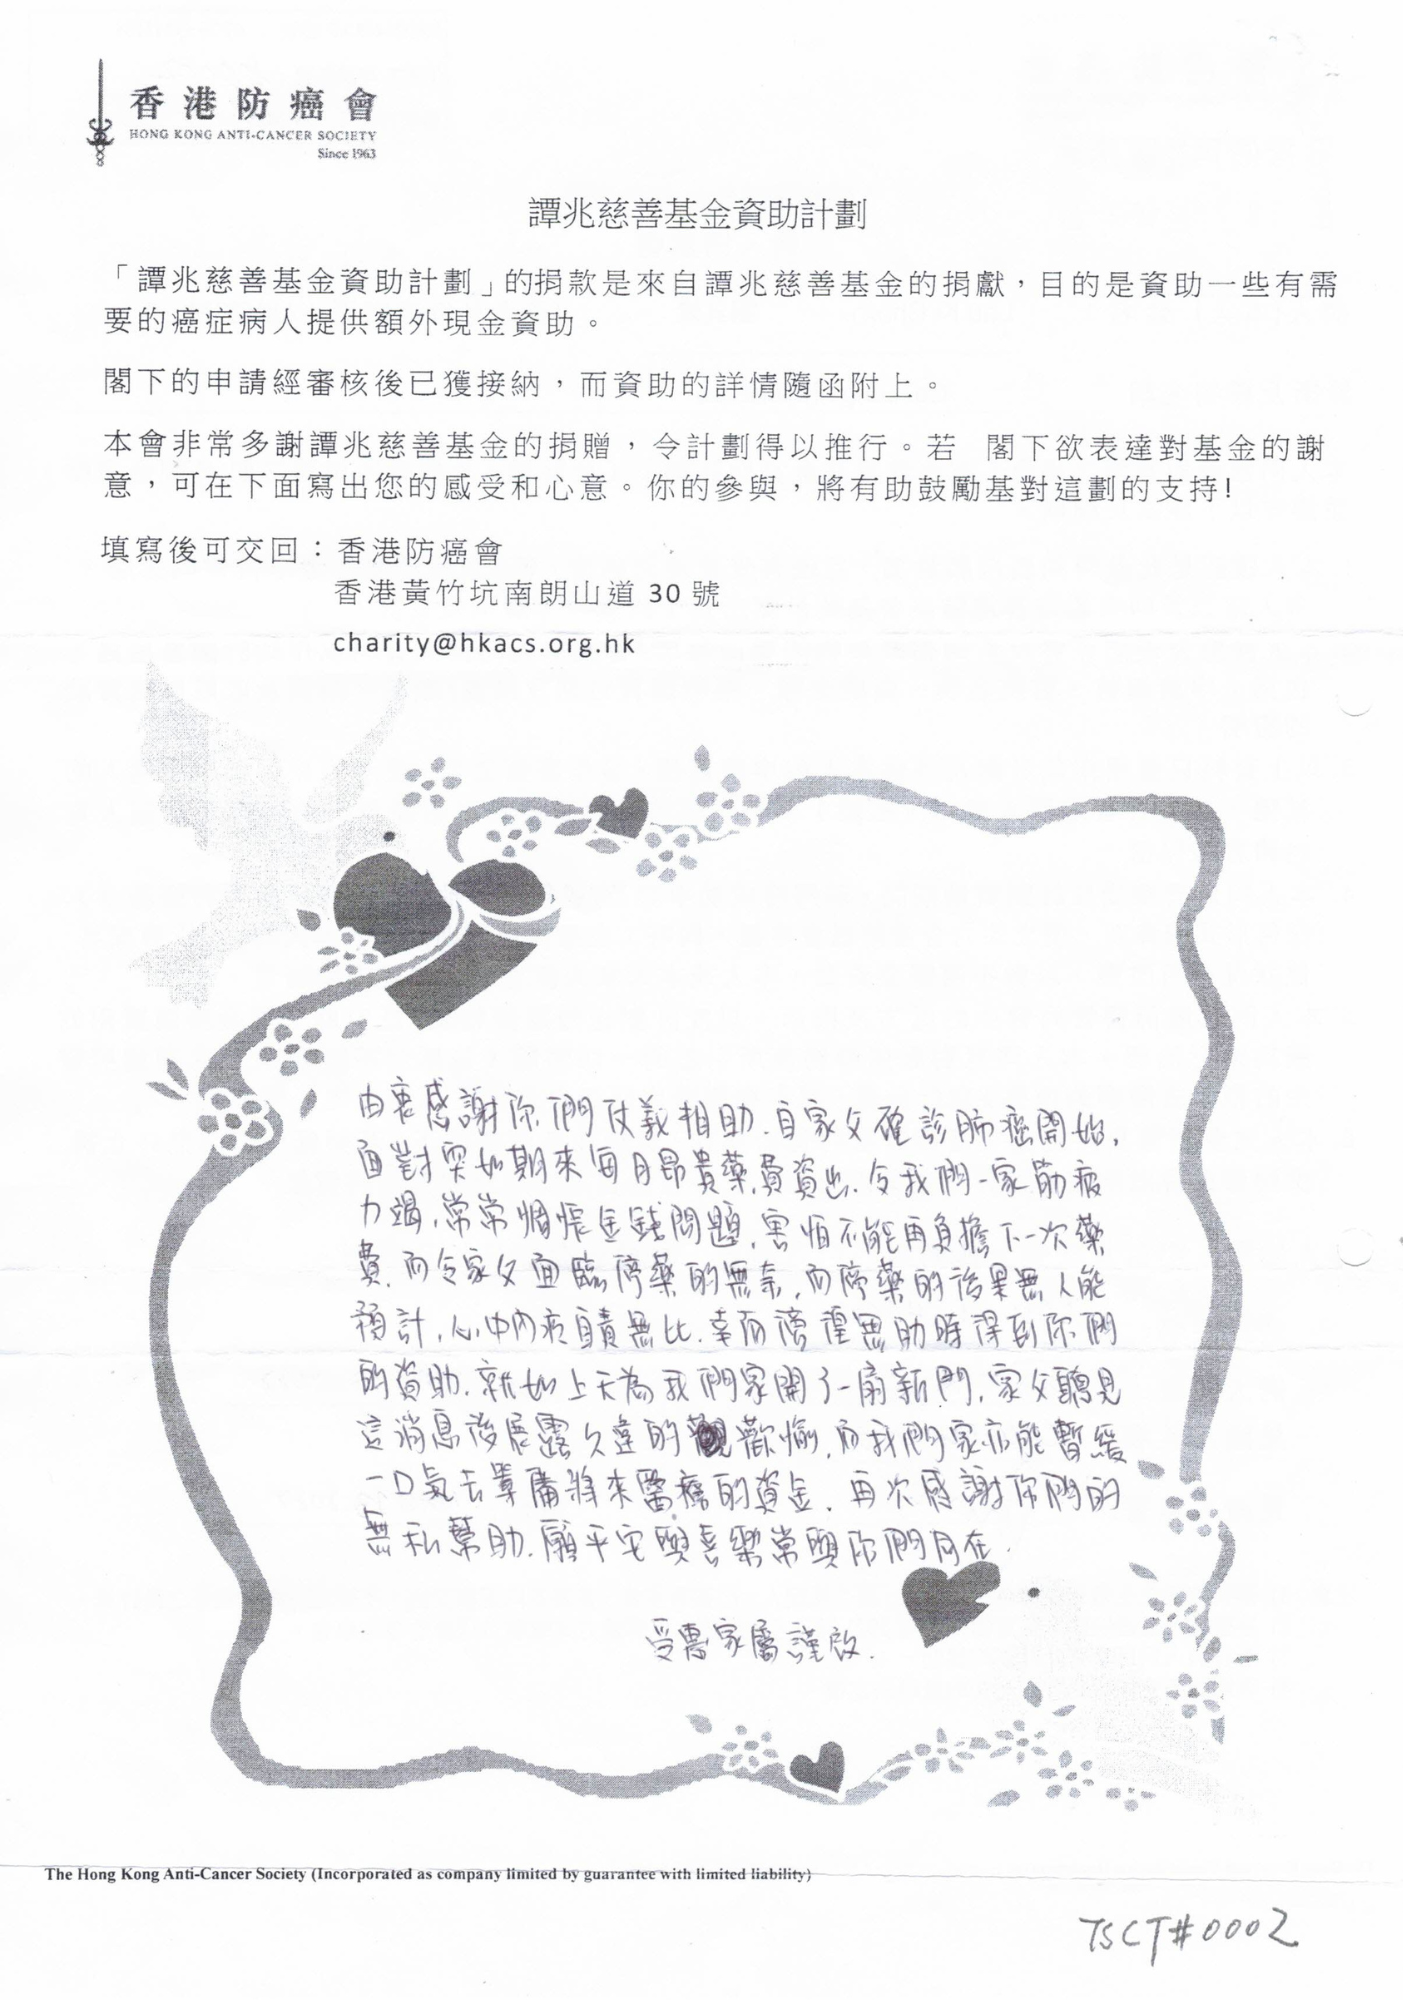 香港防癌會
HONG KONG ANTI-CANCER SOCIETY
Since 1963
譚兆慈善基金資助計劃
「譚兆慈善基金資助計劃」的捐款是來自譚兆慈善基金的捐獻，目的是資助一些有需
要的癌症病人提供額外現金資助。
閣下的申請經審核後已獲接納，而資助的詳情隨函附上。
本會非常多謝譚兆慈善基金的捐贈，令計劃得以推行。若 閣下欲表達對基金的謝
意，可在下面寫出您的感受和心意。你的參與，將有助鼓勵基對這劃的支持!
填寫後可交回：香港防癌會
香港黃竹坑南朗山道 30 號
charity@hkacs.org.hk
由衷感謝你們仗義相助.自家父確診肺癌開始,
面對突如期來每月昂貴藥費資出.令我們一家筋疲
力竭,常常惆悵金錢問題,害怕不能再負擔下一次藥
費.而令家父面臨停藥的無奈,而停藥的後果無人能
預計,心中內疚自責無比.幸而徬徨無助時得到你們
的資助.就如上天為我們家開了一扇新門,家父聽見
這消息後展露久違的歡愉,而我們家亦能暫緩
一口氣去籌備將來醫療的資金.再次感謝你們的
無私幫助.願平安與喜樂常與你們同在.
受惠家屬謹啟.
The Hong Kong Anti-Cancer Society (Incorporated as company limited by guarantee with limited liability)
TSCT#0002